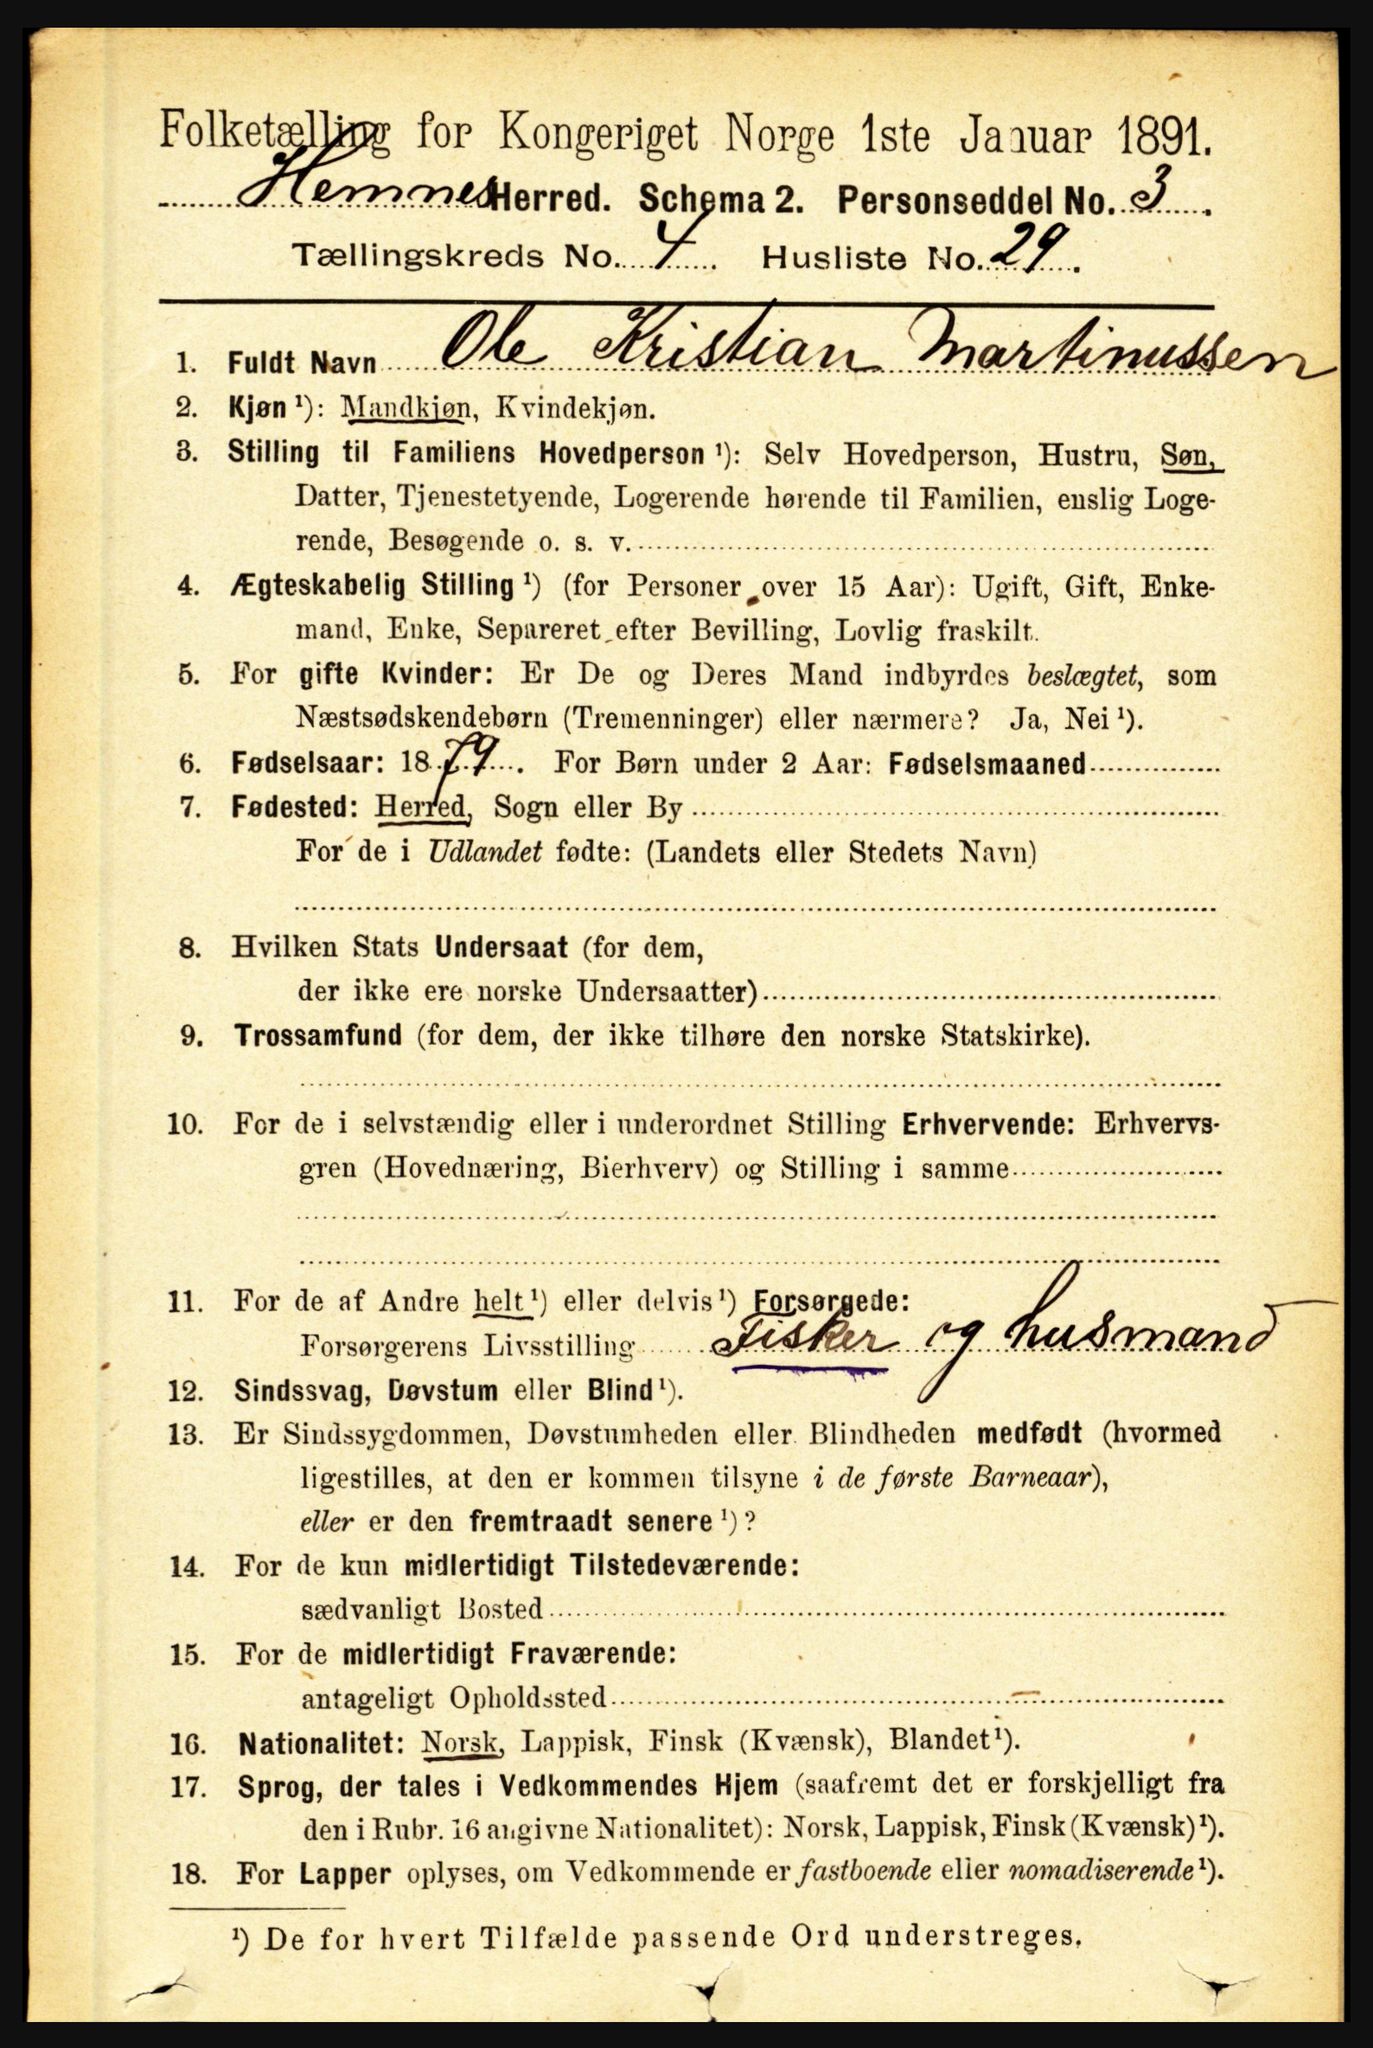 Folketælling for Kongeriget Norge 1ste Januar 1891.
Hemnes Herred. Schema 2. Personseddel No. 3.
Tællingskreds No. 4. Husliste No. 29.
1. Fuldt Navn Ole Kristian Martinussen
2. Kjøn ¹): Mandkjøn, Kvindekjøn.
3. Stilling til Familiens Hovedperson ¹): Selv Hovedperson, Hustru, Søn,
Datter, Tjenestetyende, Logerende hørende til Familien, enslig Loge-
rende, Besøgende o. s. v.
4. Ægteskabelig Stilling ¹) (for Personer over 15 Aar): Ugift, Gift, Enke-
mand, Enke, Separeret efter Bevilling, Lovlig fraskilt.
5. For gifte Kvinder: Er De og Deres Mand indbyrdes beslægtet, som
Næstsødskendebørn (Tremenninger) eller nærmere? Ja, Nei ¹).
6. Fødselsaar: 1879. For Børn under 2 Aar: Fødselsmaaned
7. Fødested: Herred, Sogn eller By
For de i Udlandet fødte: (Landets eller Stedets Navn)
8. Hvilken Stats Undersaat (for dem,
der ikke ere norske Undersaatter)
9. Trossamfund (for dem, der ikke tilhøre den norske Statskirke).
10. For de i selvstændig eller i underordnet Stilling Erhvervende: Erhvervs-
gren (Hovednæring, Bierhverv) og Stilling i samme
11. For de af Andre helt ¹) eller delvis ¹) Forsørgede:
Forsørgerens Livsstilling Fisker og husmand
12. Sindssvag, Døvstum eller Blind ¹).
13. Er Sindssygdommen, Døvstumheden eller Blindheden medfødt (hvormed
ligestilles, at den er kommen tilsyne i de første Barneaar),
eller er den fremtraadt senere ¹)?
14. For de kun midlertidigt Tilstedeværende:
sædvanligt Bosted
15. For de midlertidigt Fraværende:
antageligt Opholdssted
16. Nationalitet: Norsk, Lappisk, Finsk (Kvænsk), Blandet ¹).
17. Sprog, der tales i Vedkommendes Hjem (saafremt det er forskjelligt fra
den i Rubr. 16 angivne Nationalitet): Norsk, Lappisk, Finsk (Kvænsk) ¹).
18. For Lapper oplyses, om Vedkommende er fastboende eller nomadiserende ¹).
¹) De for hvert Tilfælde passende Ord understreges.